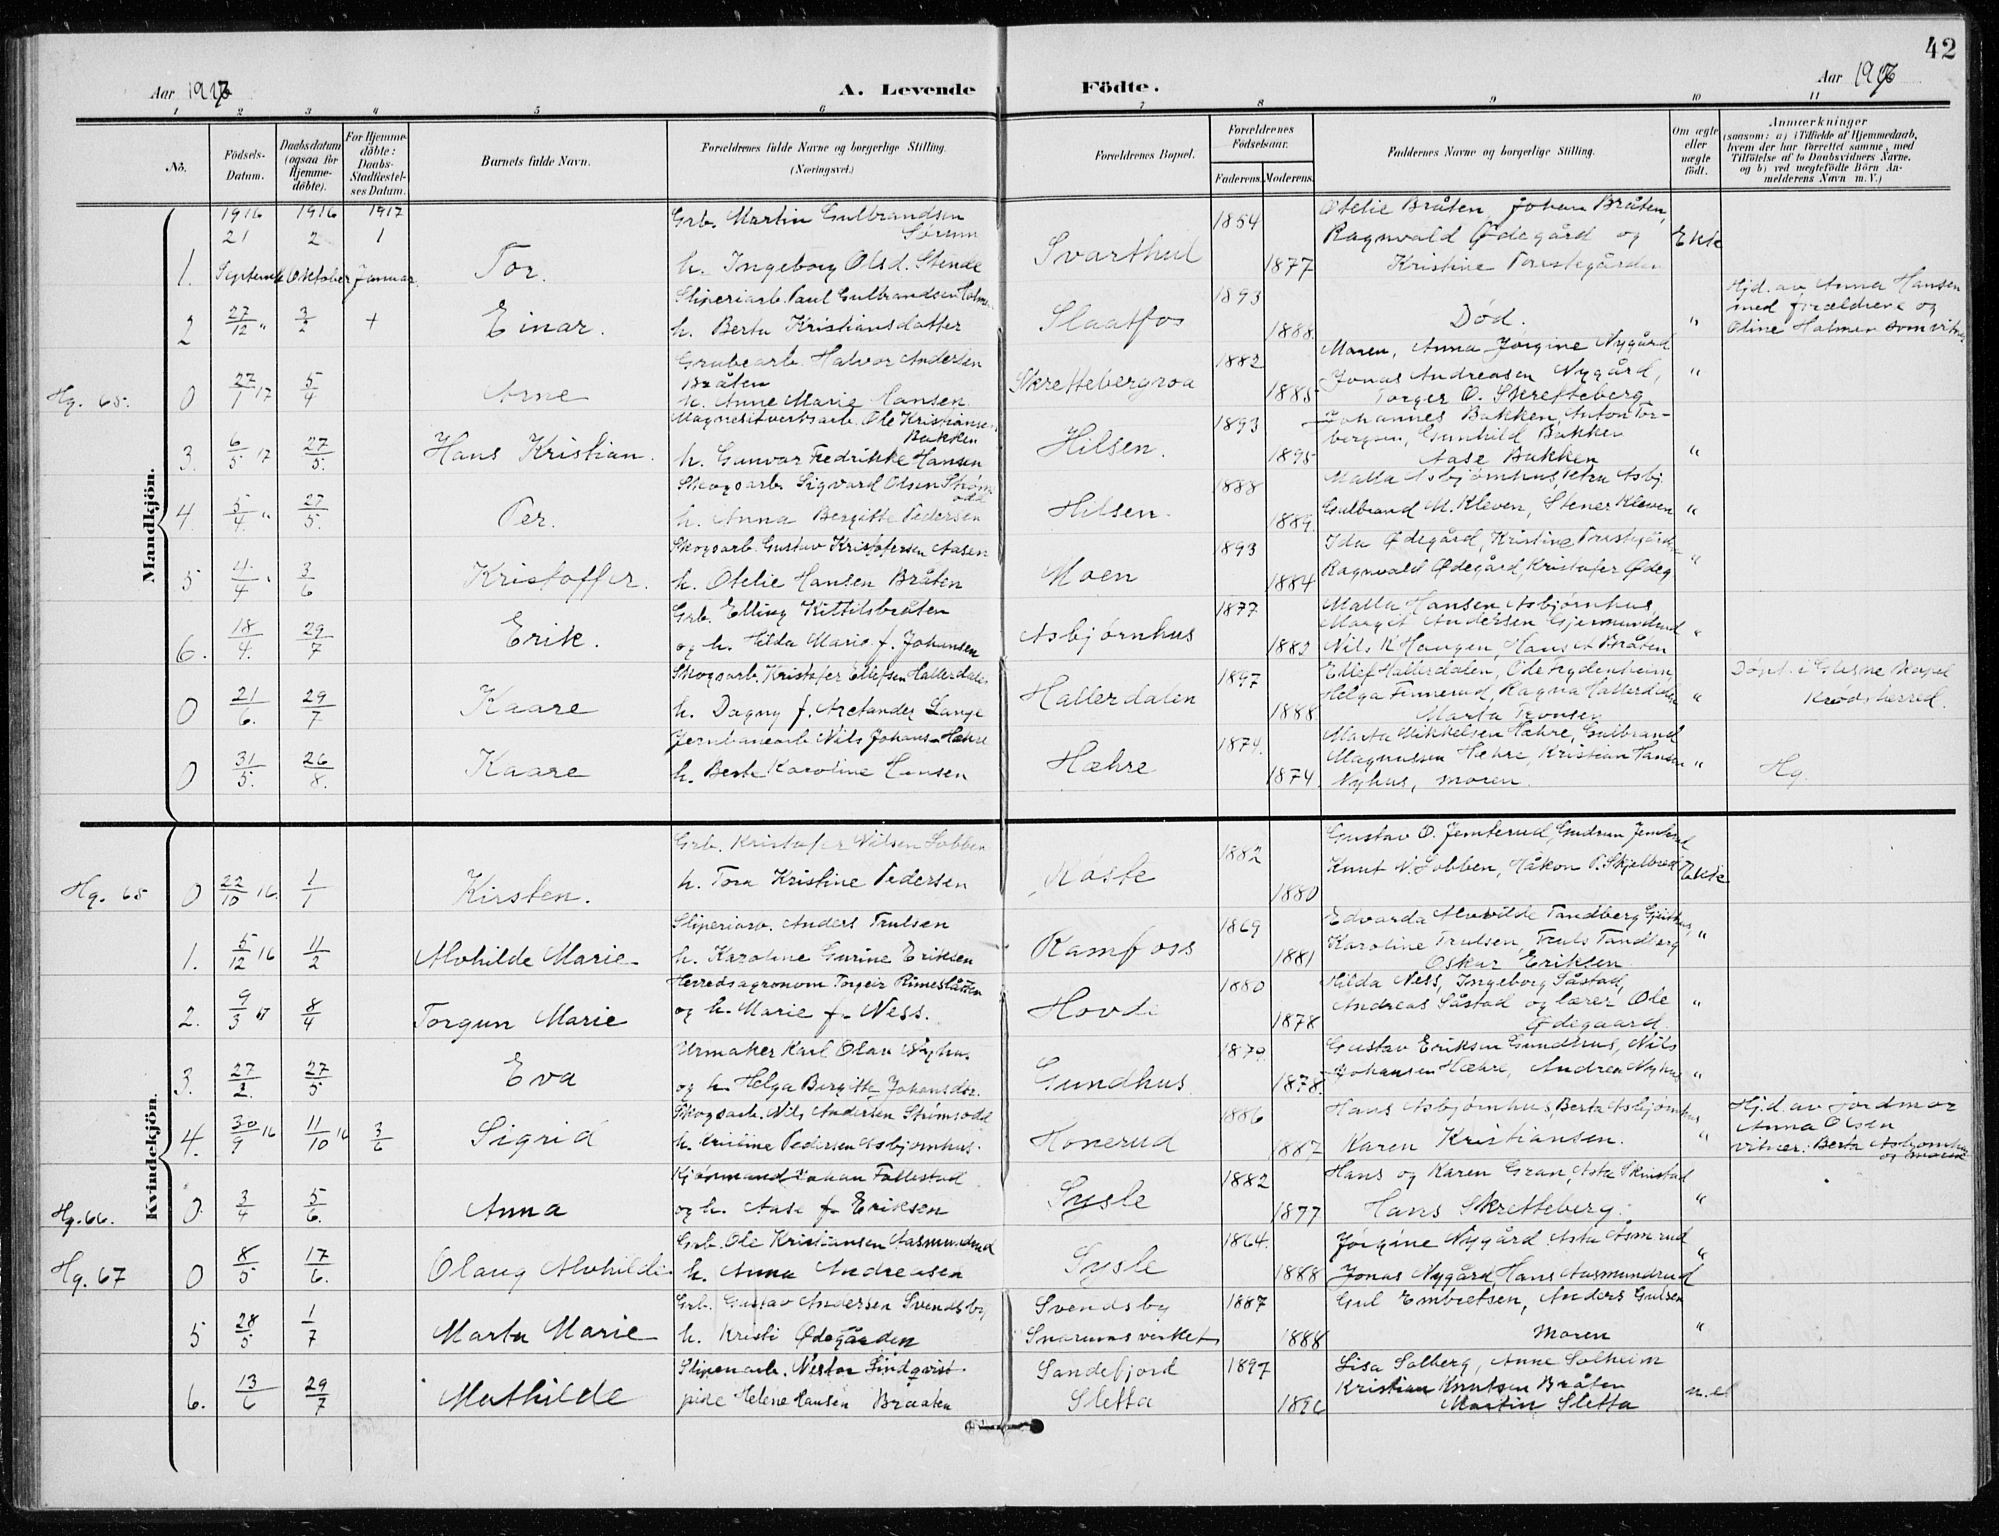 42
Aar 1917
A. Levende
Födte.
Aar 1917
1 2 3 4 5 6 7 8 9 10 11
No.
Födsels-
Datum.
Daabsdatum
(ogsaa for
Hjemme-
döbte).
For Hjemme-
döbte:
Daabs-
Stadfæstel-
ses Datum.
Barnets fulde Navn.
Forældrenes fulde Navne og borgerlige Stilling.
(Næringsvei.)
Forældrenes Bopæl.
Forældrenes
Födselsaar.
Faderens.
Moderens.
Faddernes Navne og borgerlige Stilling.
Om ægte
eller
uægte
födt.
Anmærkninger
(saasom: a) i Tilfælde af Hjemmedaab,
hvem der har forrettet samme, med
Tilföielse af to Daabsvidners Navne.
og b) ved uægtefödte Börn An-
melderens Navn m. V.)
Mandkjön.
1916 1916 1917
21 2 1
1. Septemb Oktober Januar.
Tor.
Grb. Martin Gulbrandsen
Sørum
h. Ingeborg Olsd. Stende
Svarthul
1854
1877
Otelie Bråten, Johan Bråten,
Ragnvald Ødegård og
Kristine
Ekte
2 27/12 " 3/2 +
Einar.
Sliperiarb. Paul Gulbrandsen Holmen
h. Berta Kristiansdatter
Slaatfos
1893
1888.
Død.
"
Hjd. av Anna Hansen
med forældrene og
Oline Holmen som vitner
Hg. 65. 0 27/1 17 5/4
Arne
Grubearb. Halvor Andersen
Bråten
h. Anne Marie Hansen.
Skrettebergroa
1882
1885
Moren, Anna Jørgine Nygård
Jonas Andreasen Nygård,
Torger O. Skretteberg
"
3. 6/5 17 27/5.
Hans Kristian.
Magnesitverksarb. Ole Kristiansen
Bakken
h. Gunvor Fredrikke Hansen
Hilsen.
1893
1895
Johannes Bakken, Anton Tor-
bergsen, Gunhild Bakken
Aase Bakken
"
4. 5/4. " 27/5.
Per.
Skogsarb. Sigvard Olsen Strøms
odd
h. Anna Bergitte Pedersen
Hilsen.
1888
1889.
Malla Asbjørnhus, Petra Asbj.
Gulbrand M. Kleven, Stener Kleven
"
5 4/4 " 3/6
Kristoffer.
Skogsarb. Gustav Kristofersen Aasen
h. Otelie Hansen Bråten
Moen
1893
1884
Ida Ødegård, Kristine
Ragnvald Ødegård, Kristofer Ødeg.
"
6. 18/4. 29/7
Erik.
Grb. Elling Kittilsbråten
og h. Hilda Marie f. Johansen
Asbjørnhus
1877
1882
Malla Hansen Asbjørnhus,
Margit Andersen Gjermundrud
Nils K Haugen, Hans A Bråten
"
0 21/6. 29/7
Kaare
Skogsarb. Kristofer Ellefsen Hallerdalen
h. Dagny f. Arctander Lange
Hallerdalen
1897
1888
Ellef Hallerdalen, Ole Lydenheim,
Helga Finnerud, Ragna Hallerdalen
Marta Tronsen
"
Døpt i Glesne kapel
Krødsherred.
0 31/5. 26/8.
Kaare
Jernbanearb Nils Johansen Hæhre
h. Berte Karoline Hansen
Hæhre
1874.
1874.
Marta Mikkelsen Hæhre, Gulbrand
Magnussen Hæhre Kristian Hansen
Nyhus, moren.
"
Hg.
Kvindekjön.
Hg. 65 0 22/10 16. 1/1
Kirsten.
Grb. Kristofer Nilsen Sobben
h. Tora Kristine Pedersen
Røste
1882
1880
Gustav O. Jemterud, Gudrun Jemterud
Knut N. Sobben, Håkon P. Skjelbred
Ekte
1. 5/12 16 11/2
Alvhilde Marie
Sliperiarb. Anders Trulsen
h. Karoline Gurine Eriksen
Ramfoss
1869
1881
Edvarda Alvilde Tandberg
Karoline Trulsen, Truls Tandberg
Oskar Eriksen.
"
2. 9/3 17 8/4
Torgun Marie
Herredsagronom Torgeir Rimeslåtten
og h. Marie f. Ness.
Hovde
1880
1878
Hilda Ness, Ingeborg Såstad,
Andreas Såstad og lærer Ole
Ødegaard.
"
3. 27/2. 27/5
Eva
Urmaker Karl Olav Nyhus
og h. Helga Bergitte Johansdtr.
Gundhus
1879.
1878.
Gustav Eriksen Gundhus, Nils
Johansen Hæhre, Andrea Nyhus
"
4. 30/9 16 11/10 16 3/6
Sigrid
Skogsarb. Nils Andersen Strømsodd
h. Kristine Pedersen Asbjørnhus.
Honerud
1886
1887
Hans Asbjørnhus, Berta Asbjørnhus,
Karen Kristiansen.
"
Hjd. av jordmor
Anna Olsen
vitner: Berta Asbjørnhus
og moren
Hg. 66. 0 3/4 5/6.
Anna
Kjørmand Johan Follestad
og h. Aase f. Eriksen
Sysle
1882
1877
Hans og Karen Gran, Asta Skinstad
Hans Skretteberg.
"
Hg. 67 0 8/5 17/6.
Olaug Alvhilde
Grb. Ole Kristiansen Aasmundrud
h. Anna Andreasen
Sysle
1864.
1888
Jørgine Nygård. Asta Åsmrud
Jonas Nygård, Hans Aasmundrud
"
5 28/5 1/7
Marta Marie
Grb. Gustav Andersen Svendsby,
h. Kristi Ødegården
Svendsby
Snarumsverket
1887
1888
Gul Embretsen, Anders Gulsen
Moren
"
6. 13/6 29/7
Mathilde
Sliperiarb. Nestor Lindqvist
pike Helene Hansen Braaten
Sandefjord
Sletta
1897
1896
Lisa Solberg, Anne Solheim
Kristian Knutsen Bråten
Martin Sletta
u. e